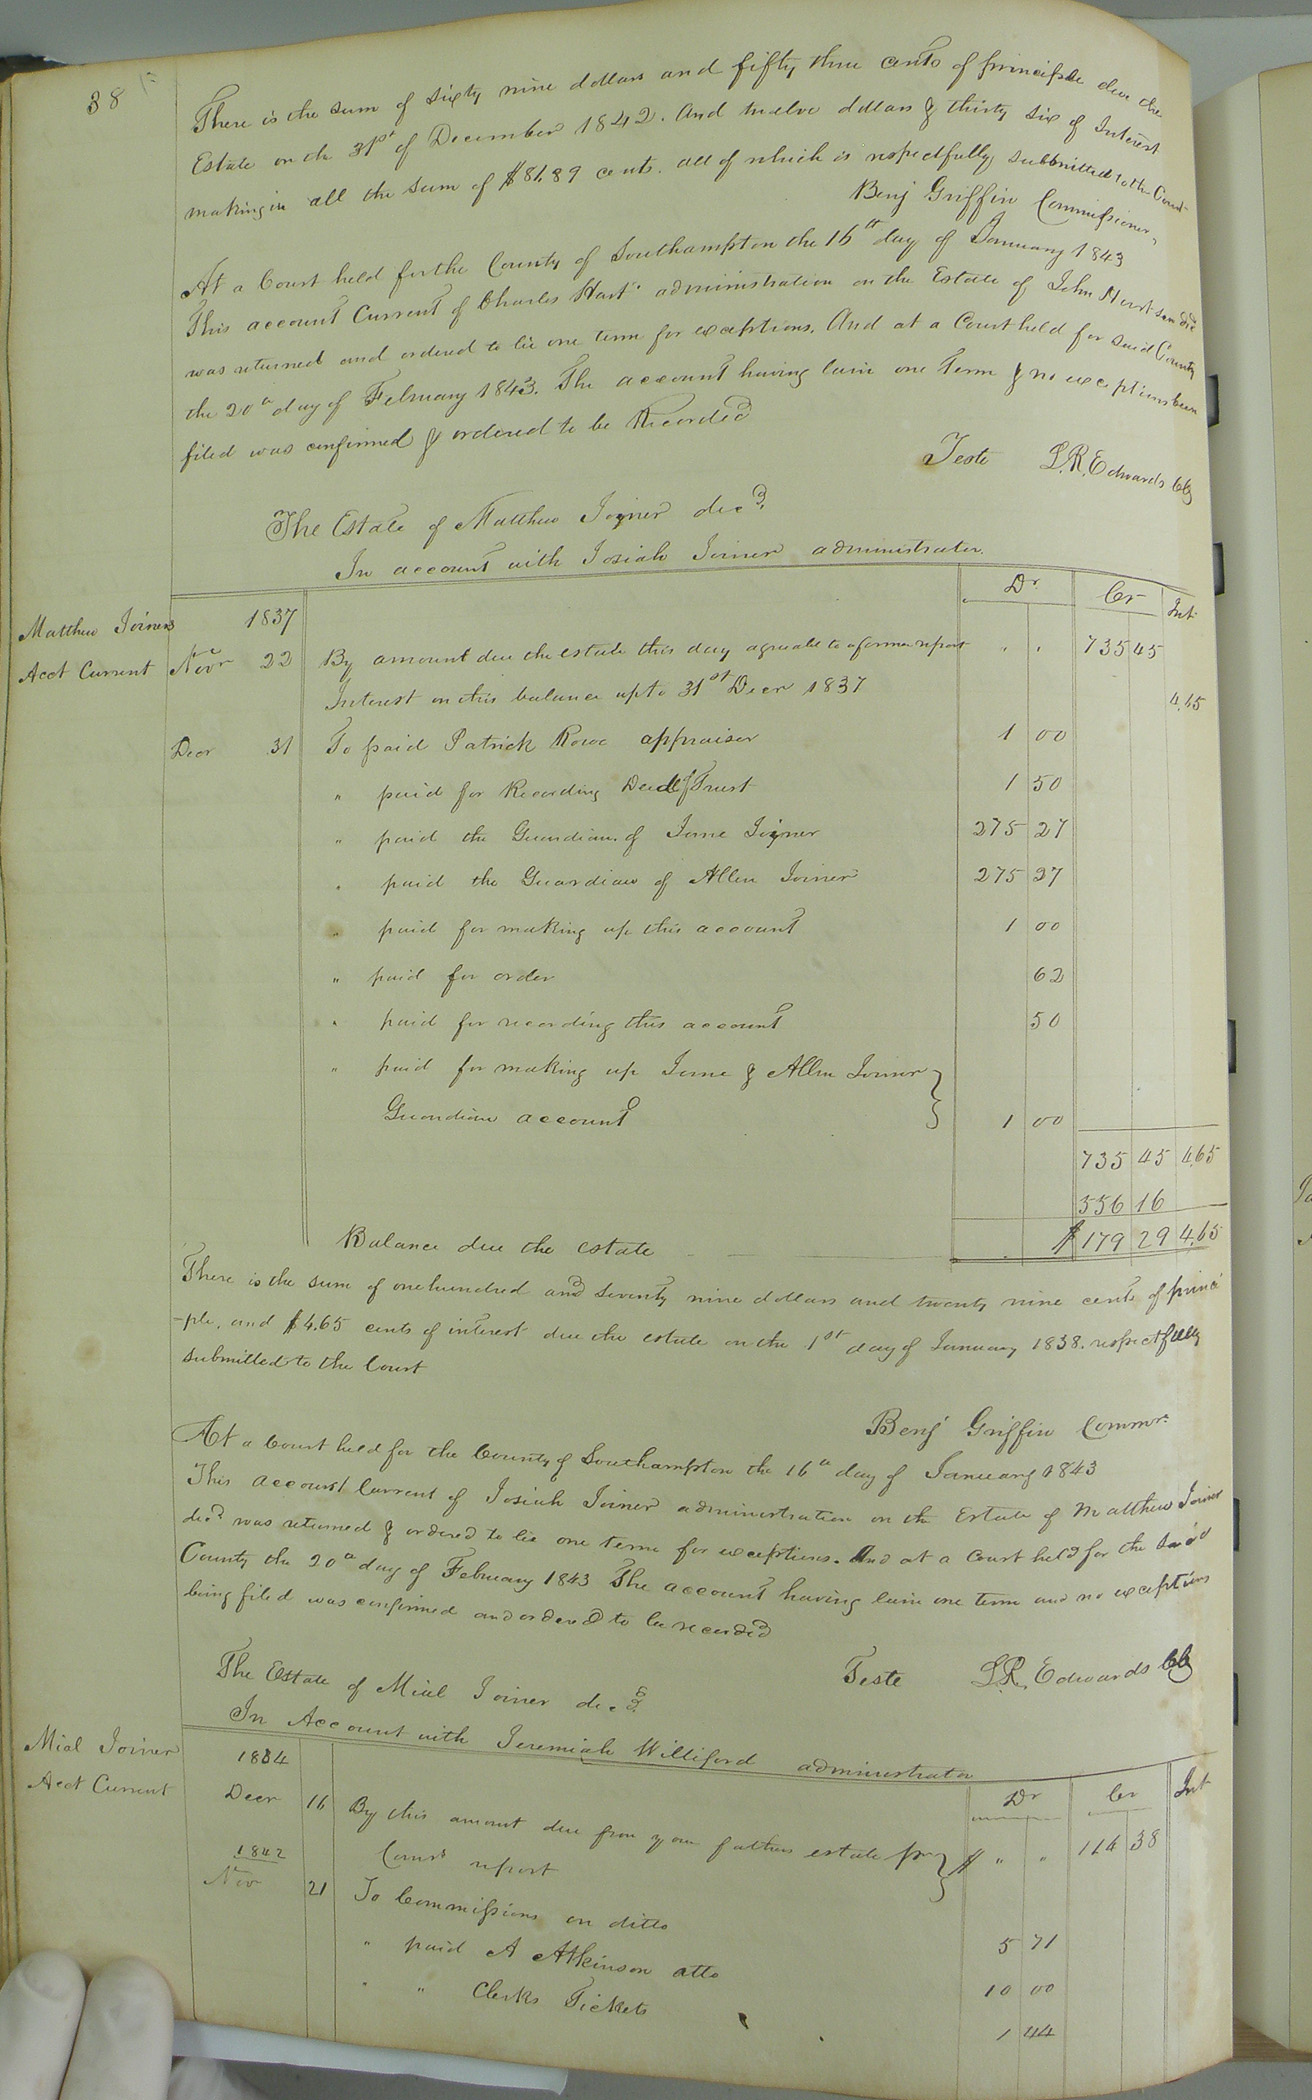 38
There is the sum of sixty nine dollars and fifty three cents of principle due the
Estate on the 31st of December 1842. And twelve dollars & thirty six of Interest
making in all the sum of $81.89 cents. all of which is respectfully submitted to the Court
Benj Griffin Commissioner,
At a Court held for the County of Southampton the 16th day of January 1843
This account Current of Charles Hart administration on the Estate of John Hurst decd
was returned and ordered to lie one term for exceptions. And at a Court held for said County
the 20th day of February 1843. The account having lain one Term & no exceptions been
filed was confirmed & ordered to be Recorded
Teste L.R. Edwards CC
The Estate of Matthew Joyner decd.
In account with Josiah Joiner administrator.
Dr. Cr Int
Matthew Joiners 1837
Acct Current Novr 22 By amount due the estate this day agreable to a former report " " 735 45
Interest on this balance up to 31st Decr 1837 4.65
Decr 31 To paid Patrick Rowe appraiser 1 00
" paid for Recording Deed of Trust 1 50
" paid the Guardian of Jane Joyner 275 27
" paid the Guardian of Allen Joiner 275 27
" paid for making up this account 1 00
" paid for order 62
" paid for recording this account 50
" paid for making up Jane & Allen Joiner
Guardian account 1 00
735 45 4.65
556 16
Balance due the estate $179 29 4.65
There is the sum of one hundred and seventy nine dollars and twenty nine cents of princi
-ple, and $4.65 cents of interest due the estate on the 1st day of January 1838. respectfully
submitted to the Court
Benj Griffin Commr.
At a Court held for the County of Southampton the 16th day of January 1843
This account Current of Josiah Joiner administration on the Estate of Matthew Joiner
decd was returned & ordered to lie one term for exceptions. And at a Court held for the said
County the 20th day of February 1843 The account having lain one term and no exceptions
being filed was confirmed and ordered to be recorded
Teste L.R. Edwards CC
The Estate of Mial Joiner decd.
In Account with Jeremiah Williford administrator
Dr Cr Int
Mial Joiner 1834
Acct Current Decr 16 By this amount due from your fathers estate pr $ " " 114 38
Comrs report
1842
Nov 21 To Commissions on ditto 5 71
" paid A Atkinson atto 10 00
" " Clerks Tickets 1 44